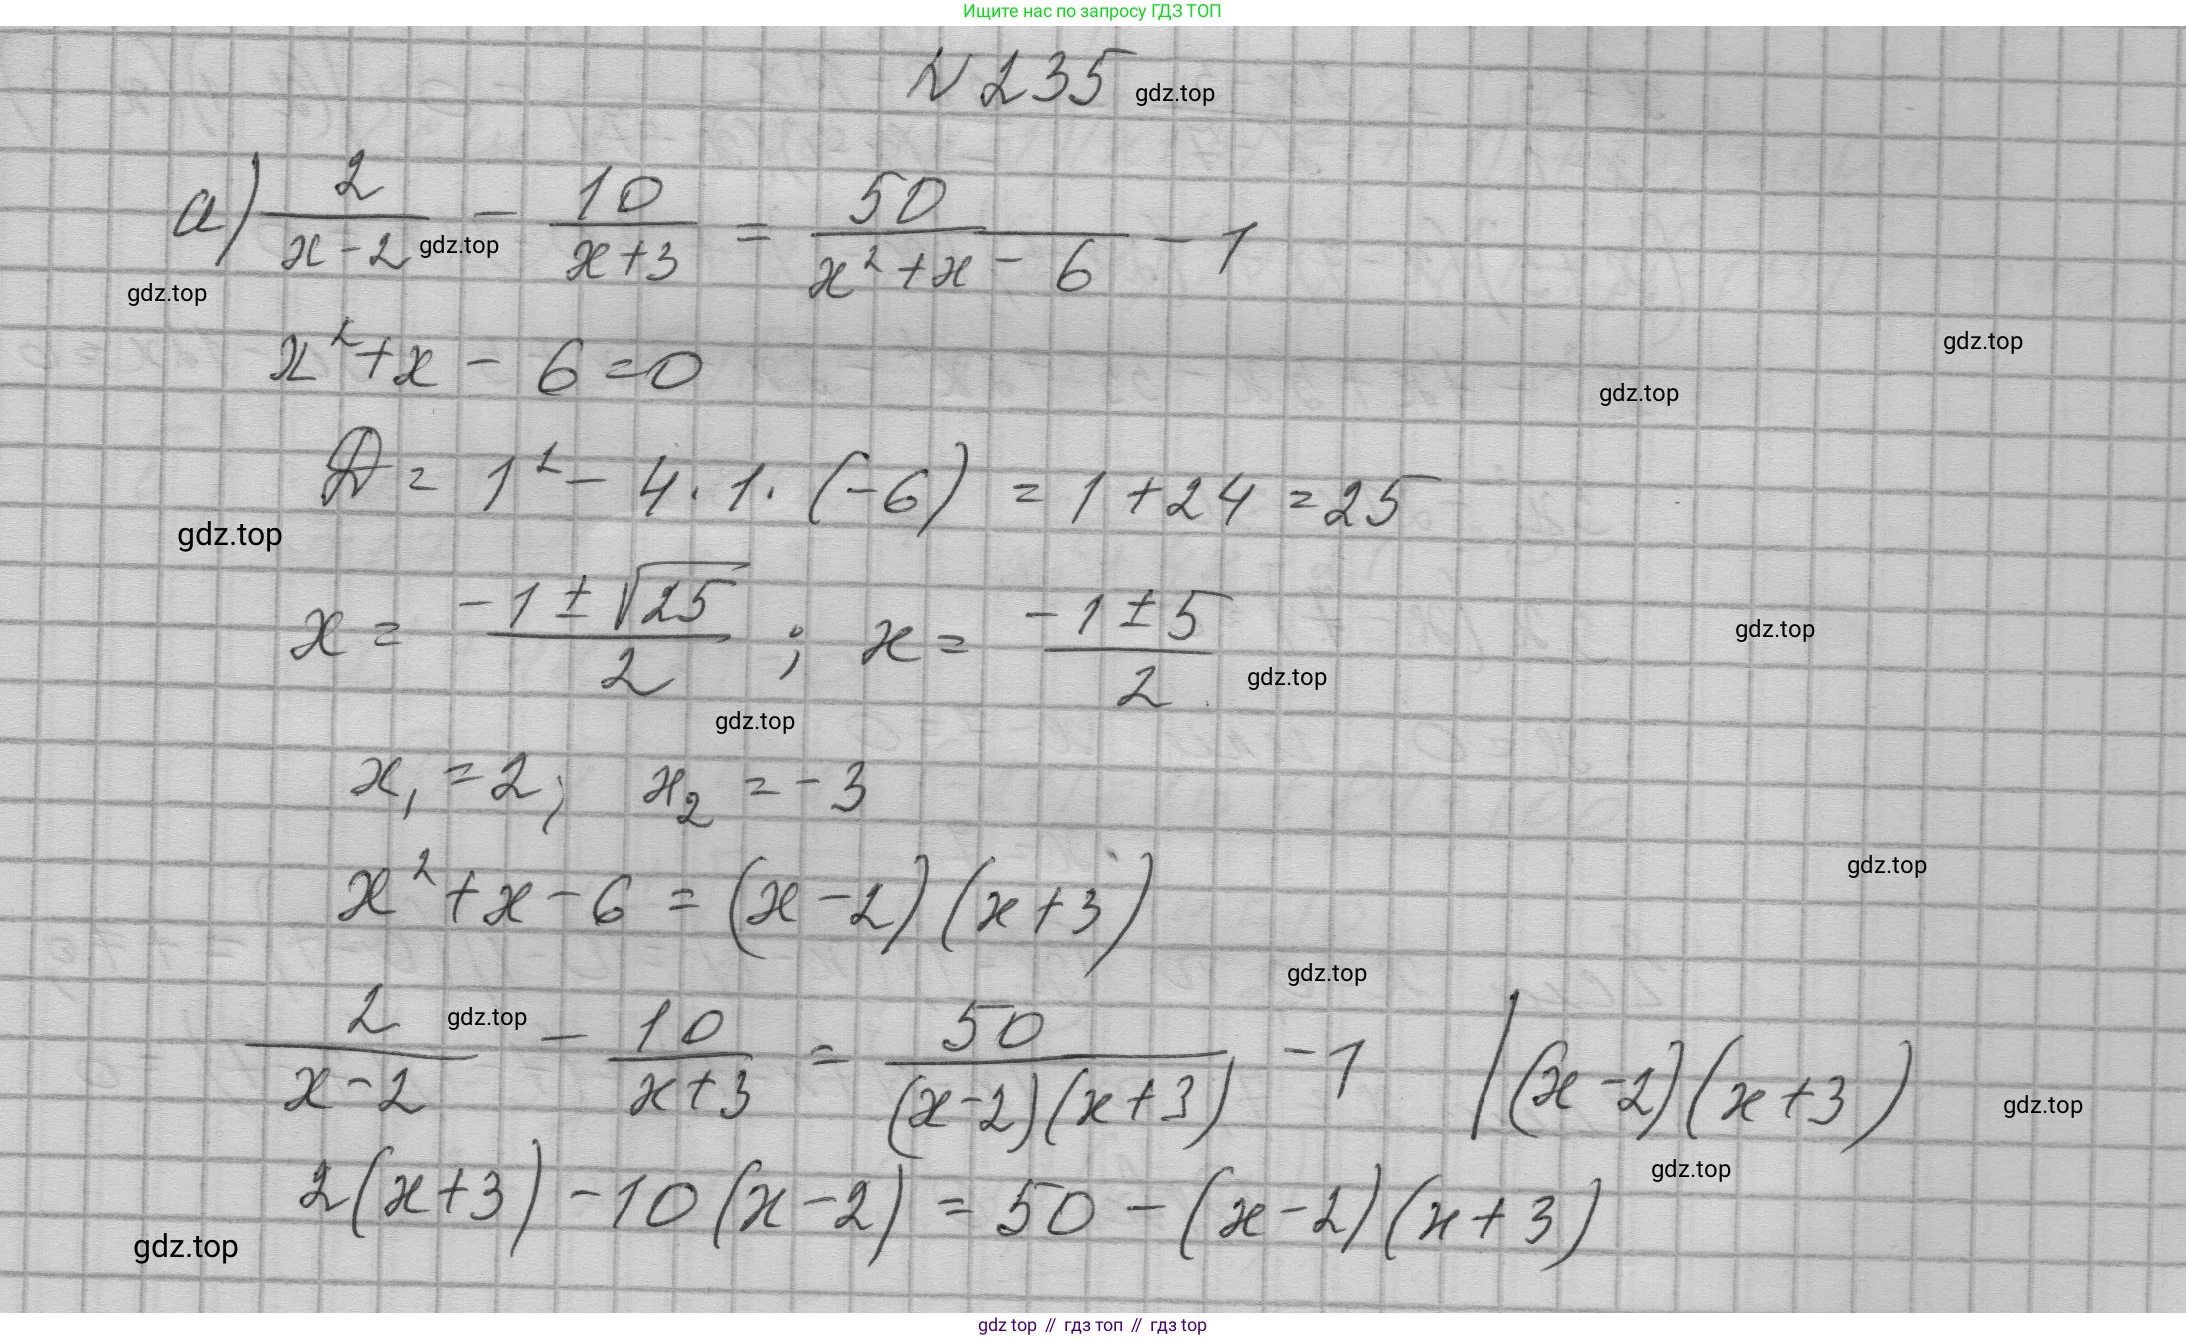 Ищите нас по запросу ГДЗ ТОП
N 235 gdz.top
а) 2/(x-2) - 10/(x+3) = 50/(x²+x-6) - 1
gdz.top
gdz.top
x²+x-6=0
gdz.top
gdz.top
D = 1² - 4·1·(-6) = 1+24 = 25
gdz.top
x = (-1±√25)/2 ; x = (-1±5)/2
gdz.top
gdz.top
gdz.top
x₁=2; x₂=-3
x²+x-6=(x-2)(x+3)
gdz.top
gdz.top
2/(x-2) - 10/(x+3) = 50/((x-2)(x+3)) - 1 |(x-2)(x+3)
gdz.top
gdz.top
gdz.top
2(x+3)-10(x-2)=50-(x-2)(x+3)
gdz.top
gdz top // гдз топ // гдз top